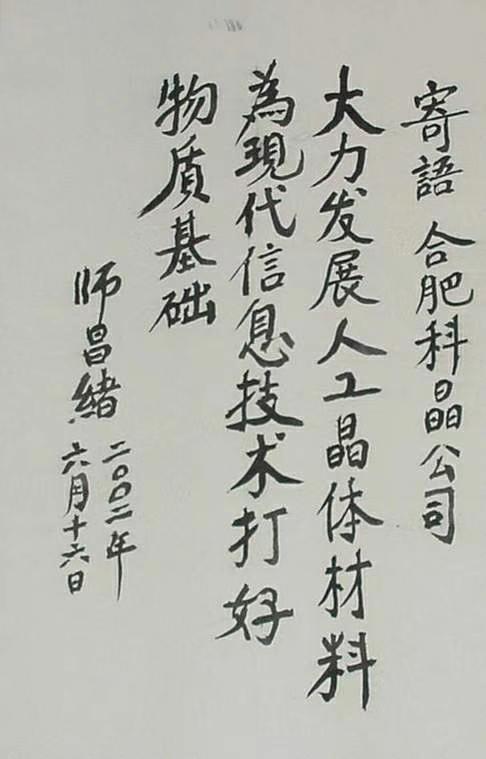 寄語 合肥科晶公司
大力发展人工晶体材料
為現代信息技术打好
物质基础
师昌緒
二〇〇二年
六月十六日